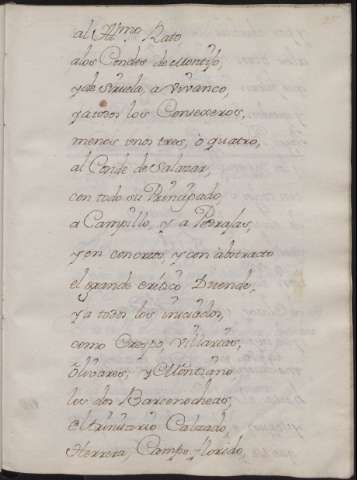 al Ill.mo Rato
a los Condes de Montijo,
y de Siruela, a Vivanco,
y a todos los Consexeros,
menos unos tres, ò quatro,
al Conde de Salazar,
con todo su Principado,
a Campillo, y a Pedrajas,
y en concreto, y con abstracto
el grande critico Duende,
y a todos los iniciados,
como Crespo, Villarias,
Olivares, y Montiano
los dos Barcenocheas,
el trinitario Calzado,
Herrera, Campo florido,